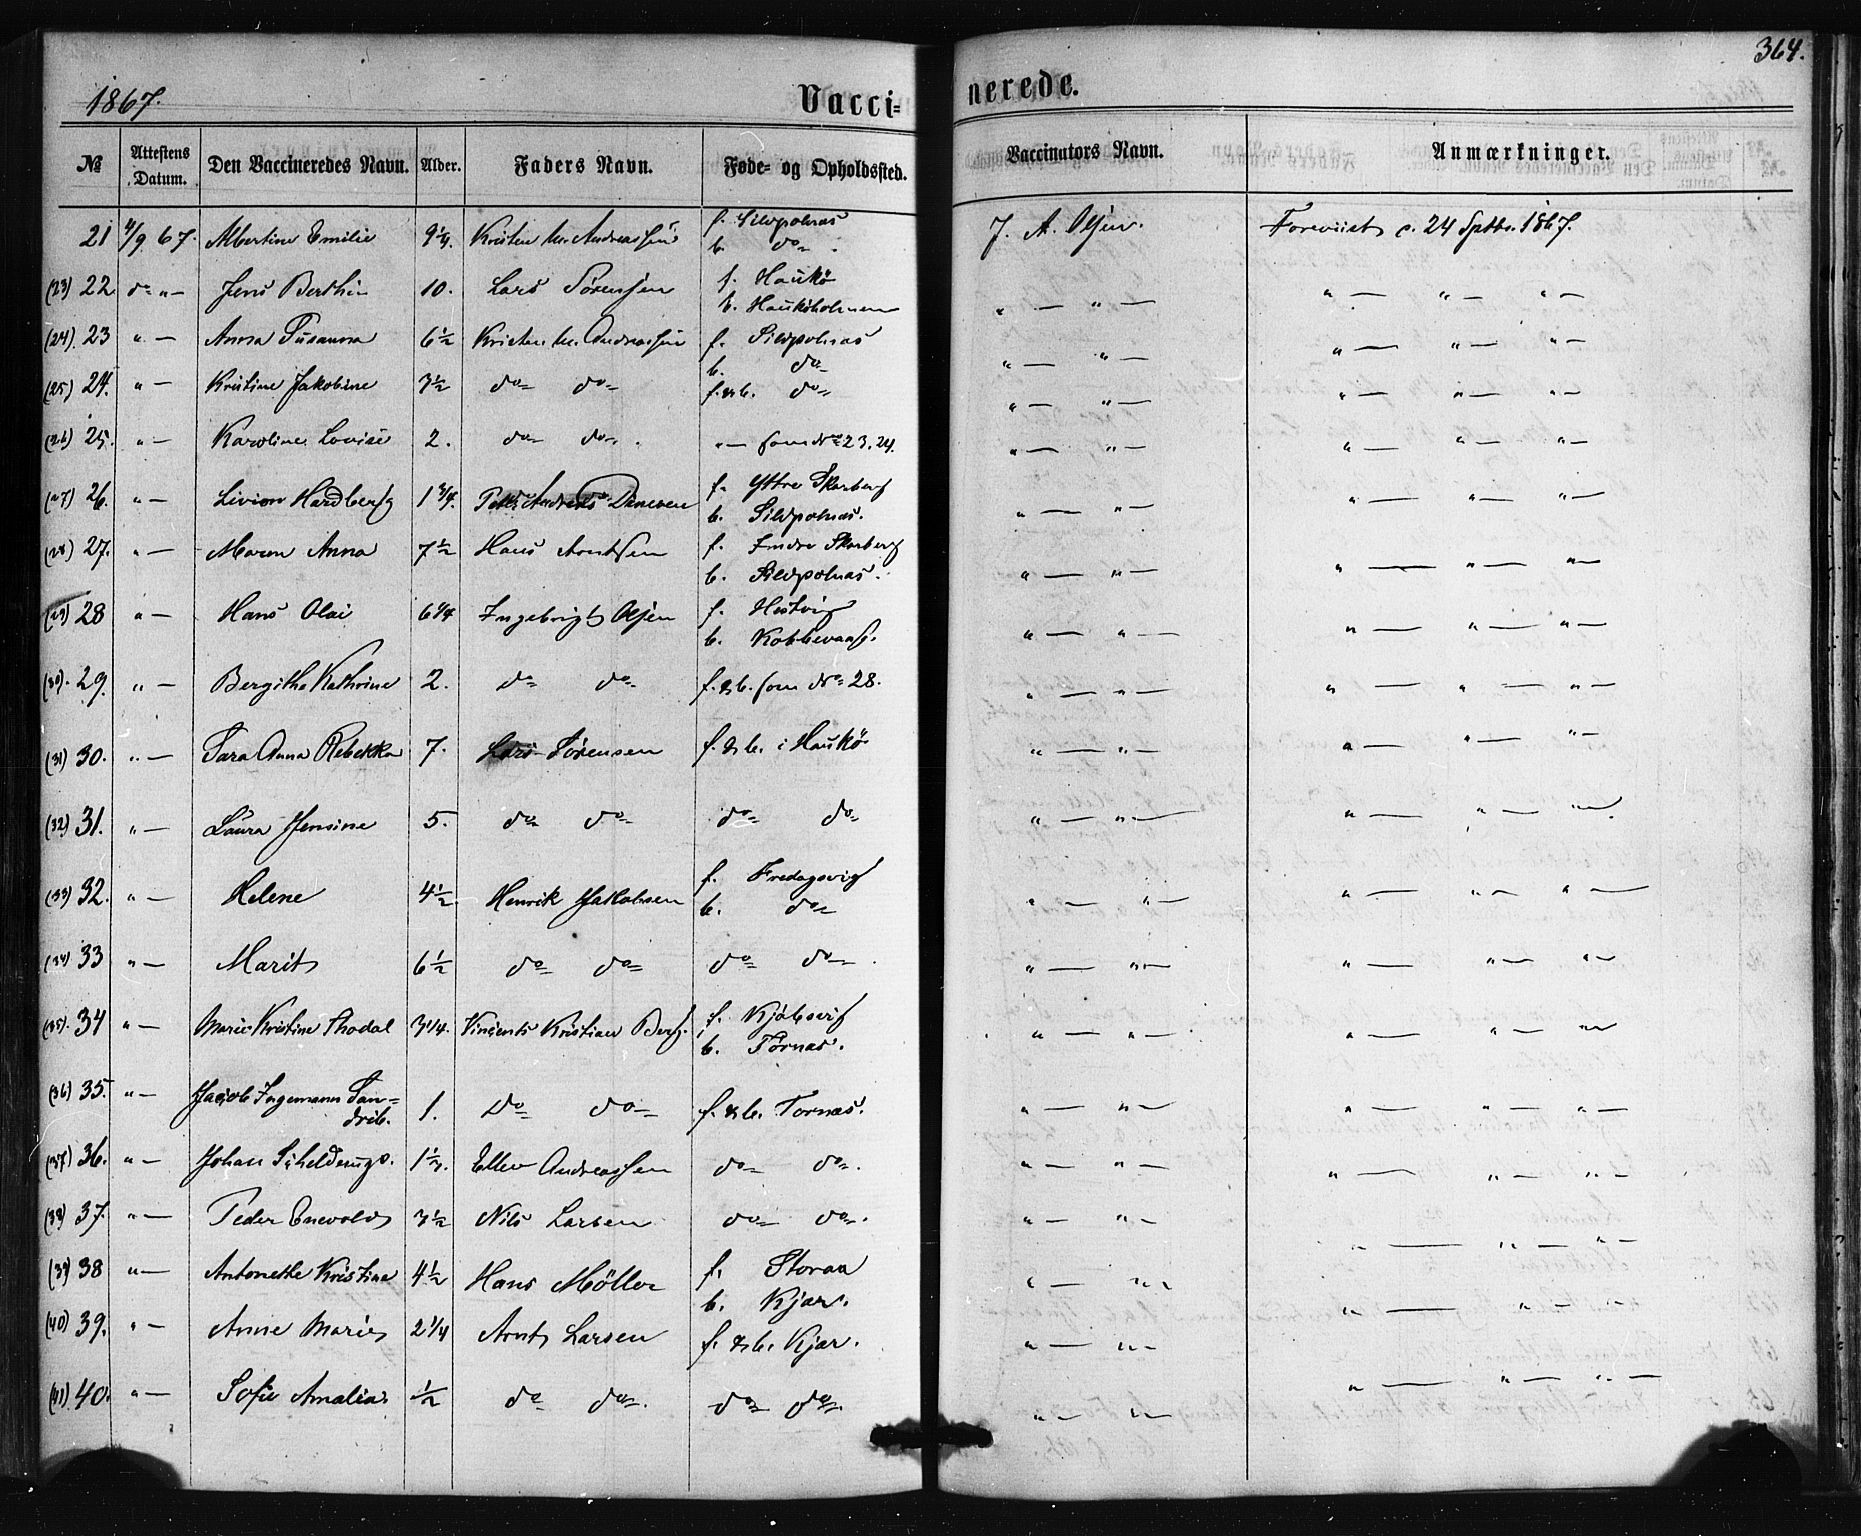 364.
1867. Vaccinerede.
№ Attestens Datum. Den Vaccineredes Navn. Alder. Faders Navn. Føde- og Opholdssted. Vaccinators Navn. Anmærkninger.
21 4/9 67. Albertine Emilie 9 1/4. Kristen M. Andreassen f. Sildpolnæs J. A. Olsen. Foreviist d. 24 Septbr. 1867.
b. do
(23) 22 do " — Jens Berthin 10. Lars Sørensen f. Haukø " — " — " — " — " —
b. Haukøholmen
(24). 23 " — Anna Susanna 6 1/2 Kristen M. Andreassen f. Sildpolnæs " — " — " — " — " —
b. do
(25) 24. " — Kristine Jakobine 3 1/2 do do f. & b. do " — " — " — " — " —
(26) 25. " — Karoline Lovise 2. do do. " — som No 23, 24. " — " — " — " — " —
(27) 26. " — Hardberg 1 3/4. Peder Andreas f. Yttre Skarberg " — " — " — " — " —
b. Sildpolnæs.
(28) 27. " — Maren Anna 7 1/2 Hans Arntsen f. Indre Skarberg " — " — " — " — " —
b. Sildpolnæs.
(29) 28 " — Hans Olai 6 1/4 Ingebrigt Olsen f. Hestvig " — " — " — " — " —
b. Kobbevaag.
(30). 29. " — Bergitha Kathrine 2. do do f. & b. som No 28. " — " — " — " — " —
(31) 30. " — Sara Anna Rebekka 7. Lars Sørensen f. & b. i Haukø " — " — " — " — " —
(32) 31. " — Laura Jensine 5. do do do do " — " — " — " — " —
(33) 32. " — Helene 4 1/2 Henrik Jakobsen f. Fredagsvig " — " — " — " — " —
b. do
(34) 33 " — Marit 6 1/2 do do do do . " — " — " — " — " —
(35). 34 " — Marie Kristine Thodal 3 1/4. Vincents Kristian Berg. f. Kjøbsvig " — " — " — " — " —
b. Tornæs.
(36) 35. " — Jacob Ingemann San=
drib. 1. do do f. & b. Tornæs. " — " — " — " — " —
(37) 36. " — Johan Schelderup. 1 1/2. Ellev Andreassen do do. " — " — " — " — " —
(38) 37. " — Peder Enevold 3 1/2 Nils Larsen do do. " — " — " — " — " —
(39) 38 " — Antonette Kristine 4 1/2 Hans Möller f. Storaa " — " — " — " — " —
b. Kjær.
(40) 39. " — Anne Marie 2 1/4 Arnt Larsen f. & b. Kjær. " — " — " — " — " —
(41) 40. " — Sofie Amalia 1/2 do do. do do. " — " — " — " — " —